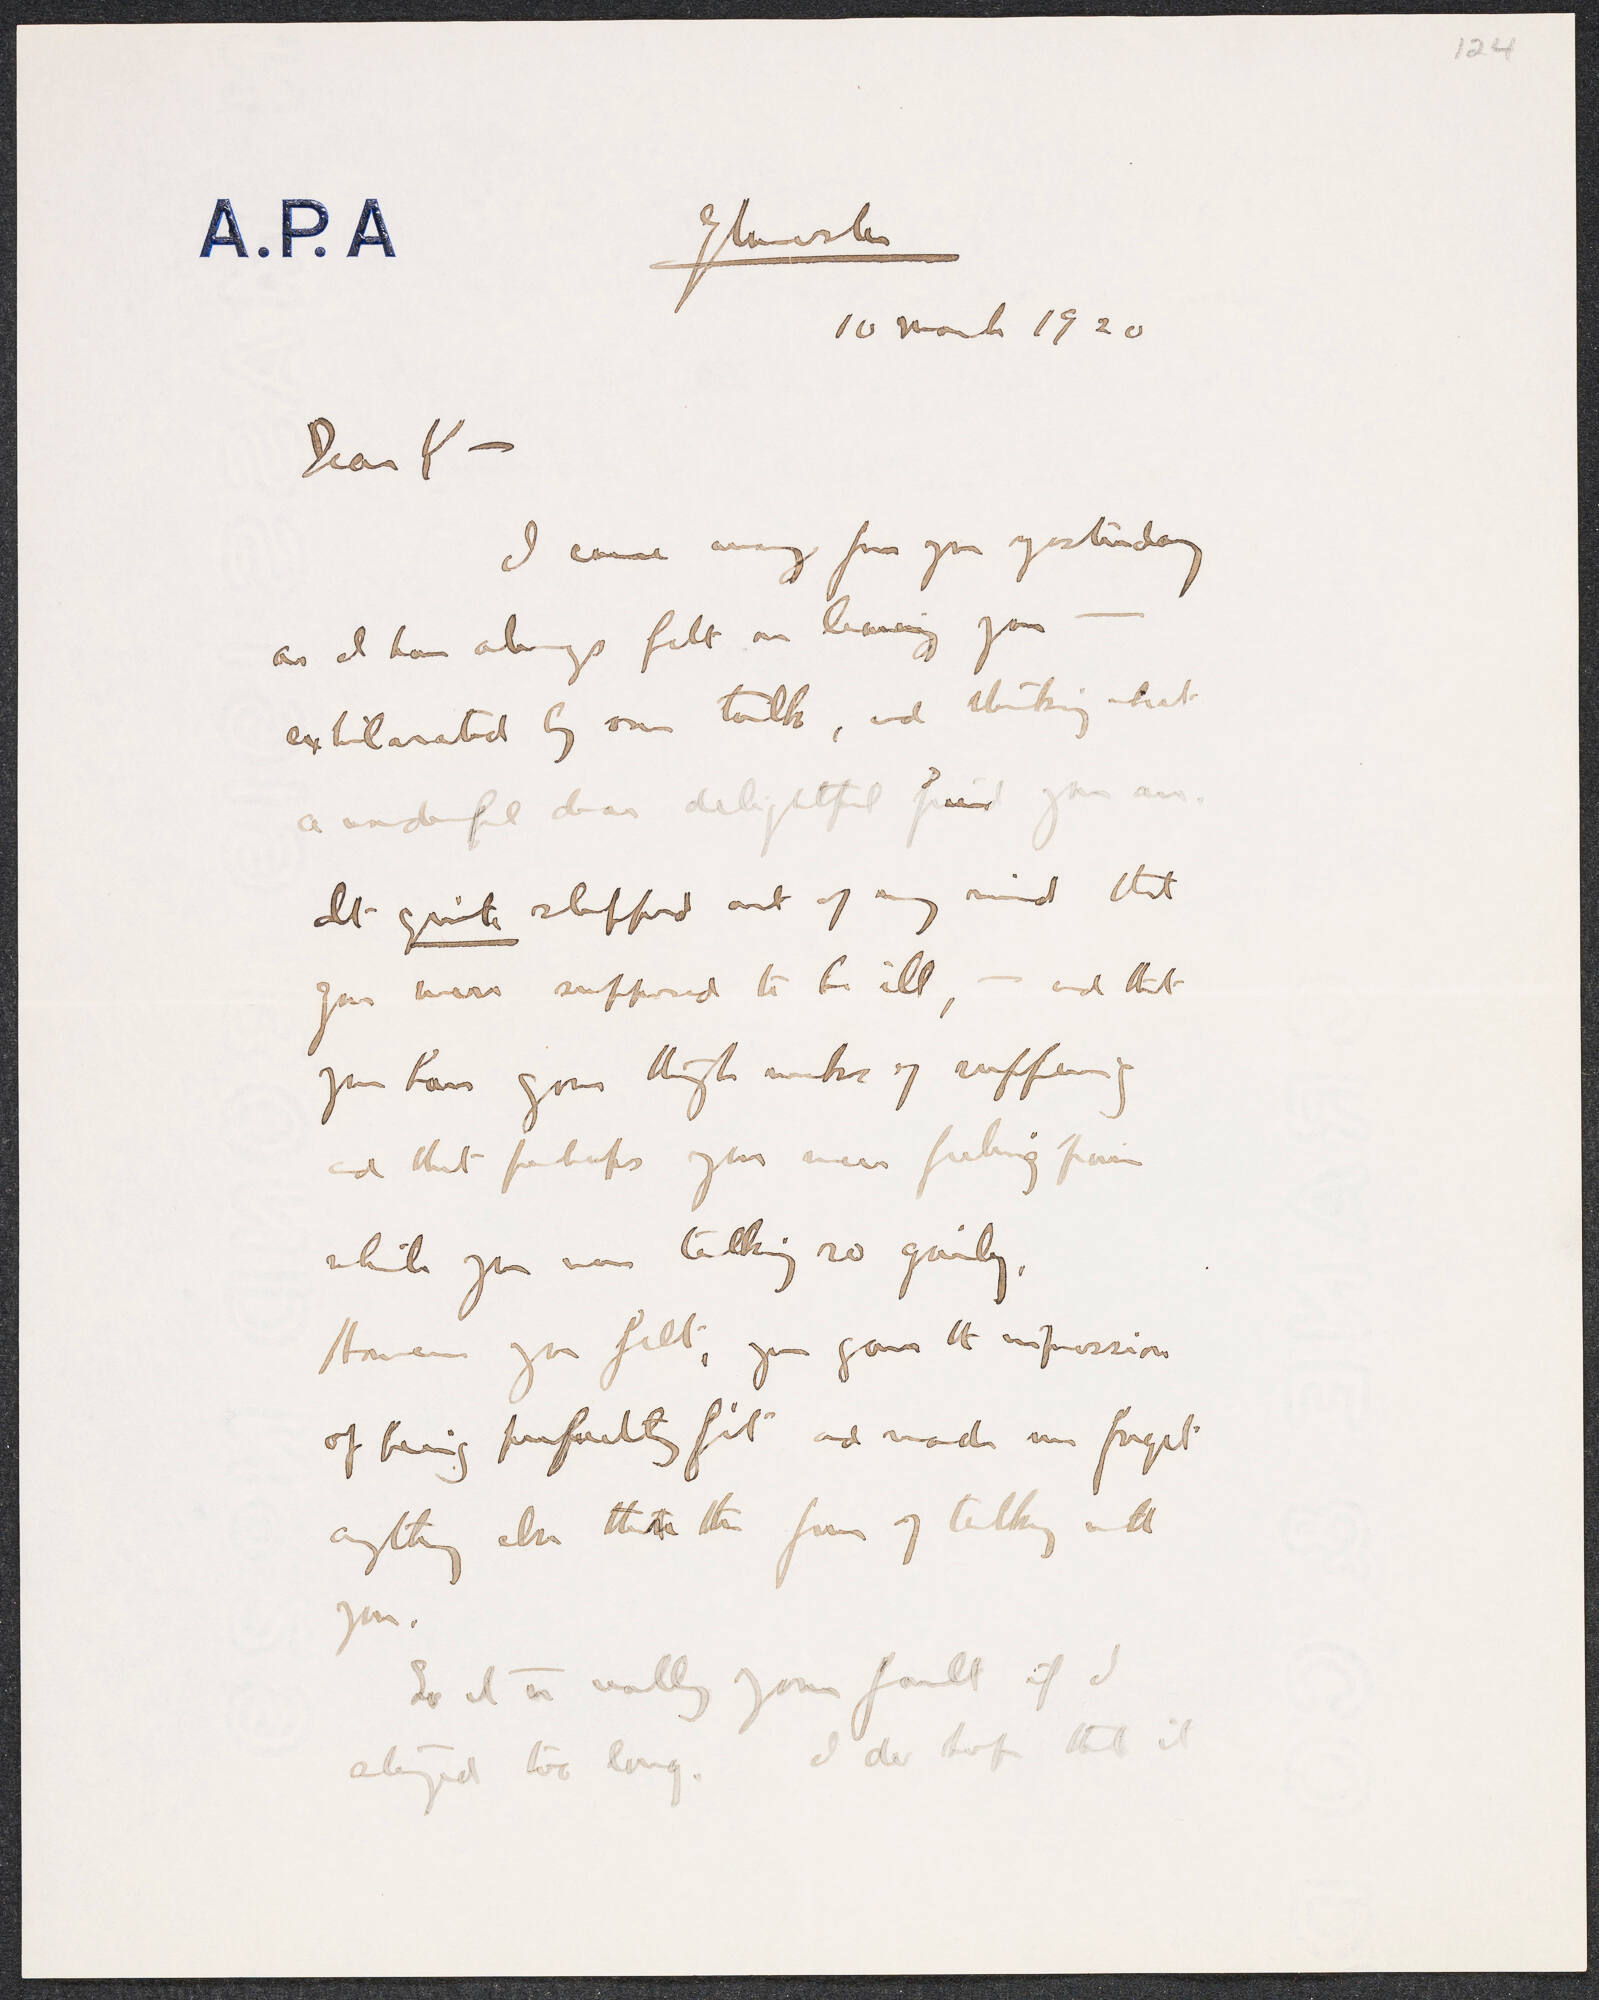 124
A.P.A
Gloucester
10 March 1920
Dear K —
I came away from you yesterday
as I have always felt on leaving you —
exhilarated by our talk, and thinking what
a wonderful dear delightful friend you are.
It quite slipped out of my mind that
you were supposed to be ill, — and that
you have gone through weeks of suffering
and that perhaps you were feeling pain
while you were talking so gaily.
However you felt, you gave the impression
of being perfectly fit and made me forget
anything else than the fun of talking with
you.
So it is really your fault if I
stayed too long. I do hope that it